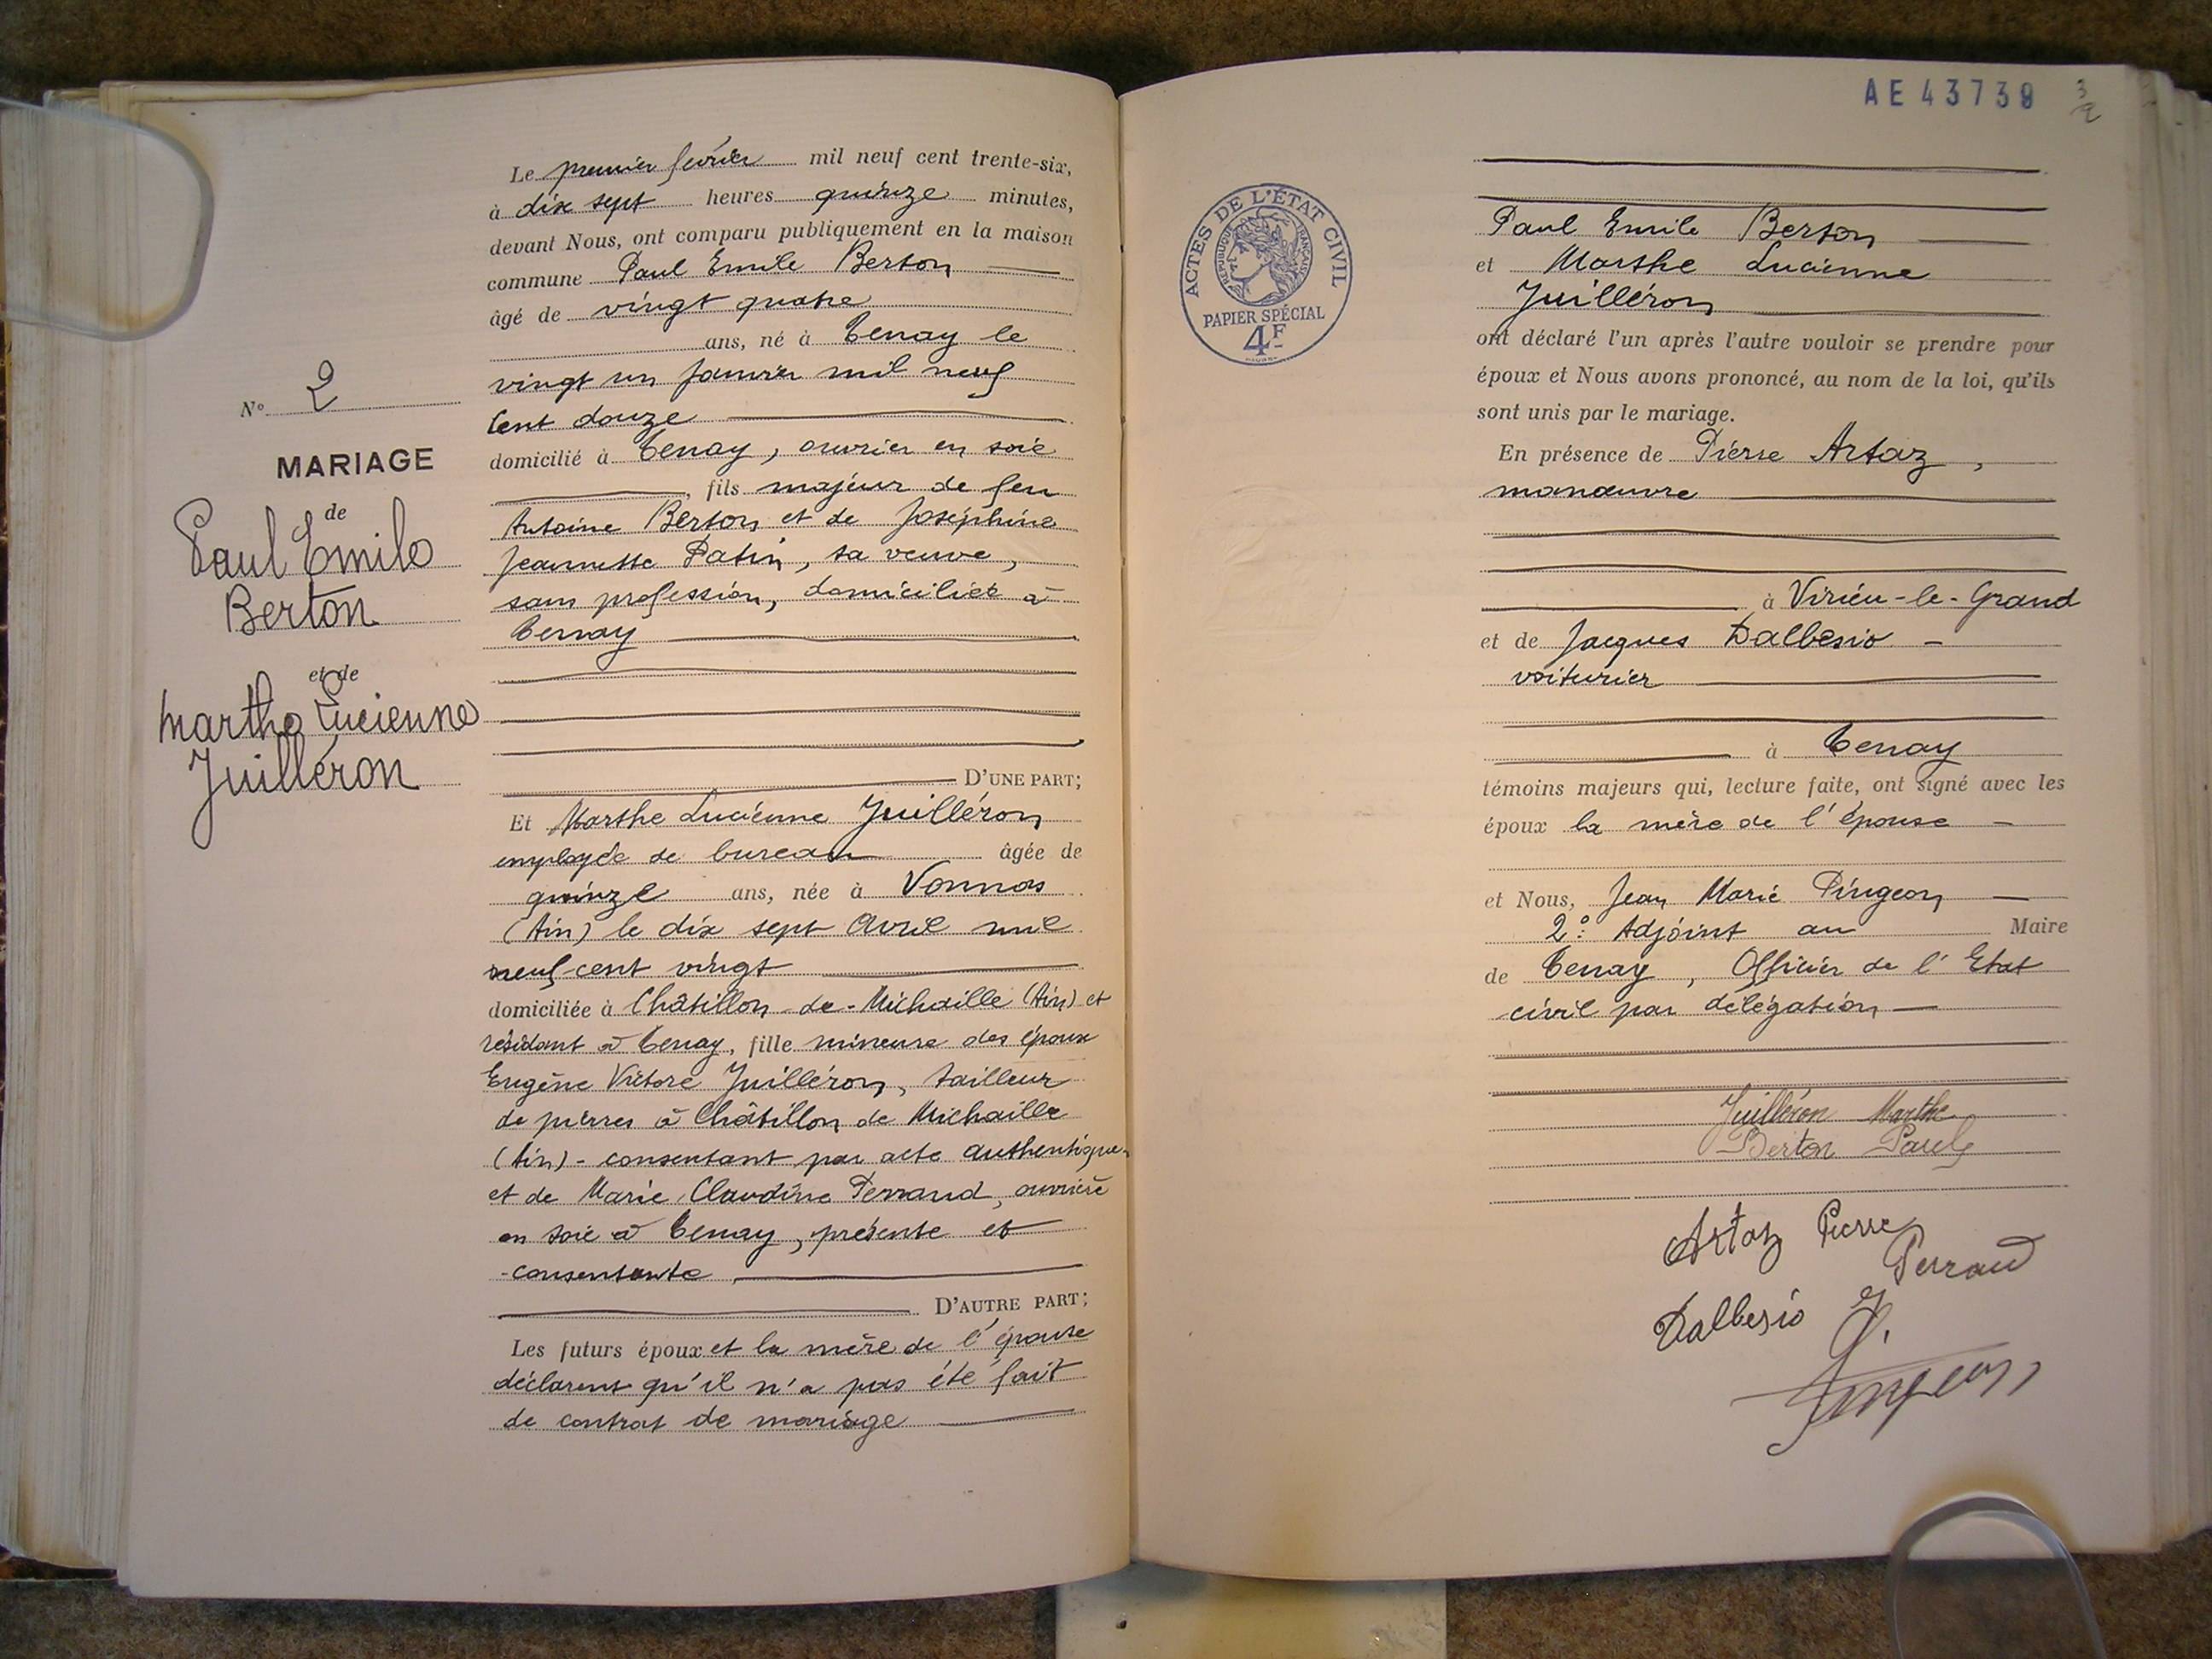 Le premier février mil neuf cent trente-six,
à dix sept heures quinze minutes,
devant Nous, ont comparu publiquement en la maison
commune Paul Emile Berton
âgé de vingt quatre
ans, né à Tenay le
vingt un janvier mil neuf
cent douze
domicilié à Tenay, ouvrier en soie
, fils majeur de feu
Antoine Berton et de Joséphine
Jeannette Patin, sa veuve,
sans profession, domiciliée à
Tenay
D'UNE PART;
Et Marthe Lucienne Juilléron
employée de bureau âgée de
quinze ans, née à Vonnas
(Ain) le dix sept Avril mil
neuf cent vingt
domiciliée à Châtillon-de-Michaille (Ain) et
résidant à Tenay, fille mineure des époux
Eugène Victore Juilléron, tailleur
de pierres à Châtillon de Michaille
(Ain) - consentant par acte authentique-
et de Marie Claudine Perraud, ouvrière
en soie à Tenay, présente et
consentante
D'AUTRE PART;
Les futurs époux et la mère de l'épouse
déclarent qu'il n'a pas été fait
de contrat de mariage
N° 2
MARIAGE
de
Paul Emile
Berton
et de
Marthe Lucienne
Juilléron
AE 43739
3
2
ACTES DE L'ÉTAT CIVIL
RÉPUBLIQUE FRANÇAISE
PAPIER SPÉCIAL
4F
Paul Emile Berton
et Marthe Lucienne
Juilléron
ont déclaré l'un après l'autre vouloir se prendre pour
époux et Nous avons prononcé, au nom de la loi, qu'ils
sont unis par le mariage.
En présence de Pierre Artaz,
manœuvre
à Virieu-le-Grand
et de Jacques Dalbesio
voiturier
à Tenay
témoins majeurs qui, lecture faite, ont signé avec les
époux la mère de l'épouse
et Nous, Jean Marie Pingeon
2e Adjoint au Maire
de Tenay, Officier de l'Etat
civil par délégation
Juilléron Marthe
Berton Paul
Artaz Pierre
Perraud
Dalbesio J.
Pingeon